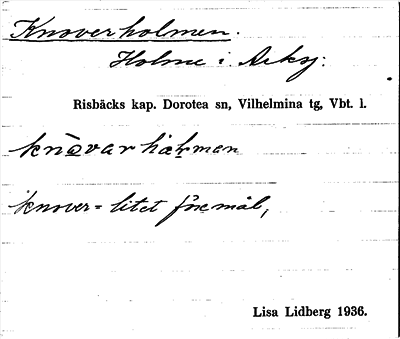 Knoverholmen.
Holme i Arksj:
Risbäcks kap. Dorotea sn, Vilhelmina tg, Vbt. l.
knòvarhàḷmen
knover = litet föremål,
Lisa Lidberg 1936.